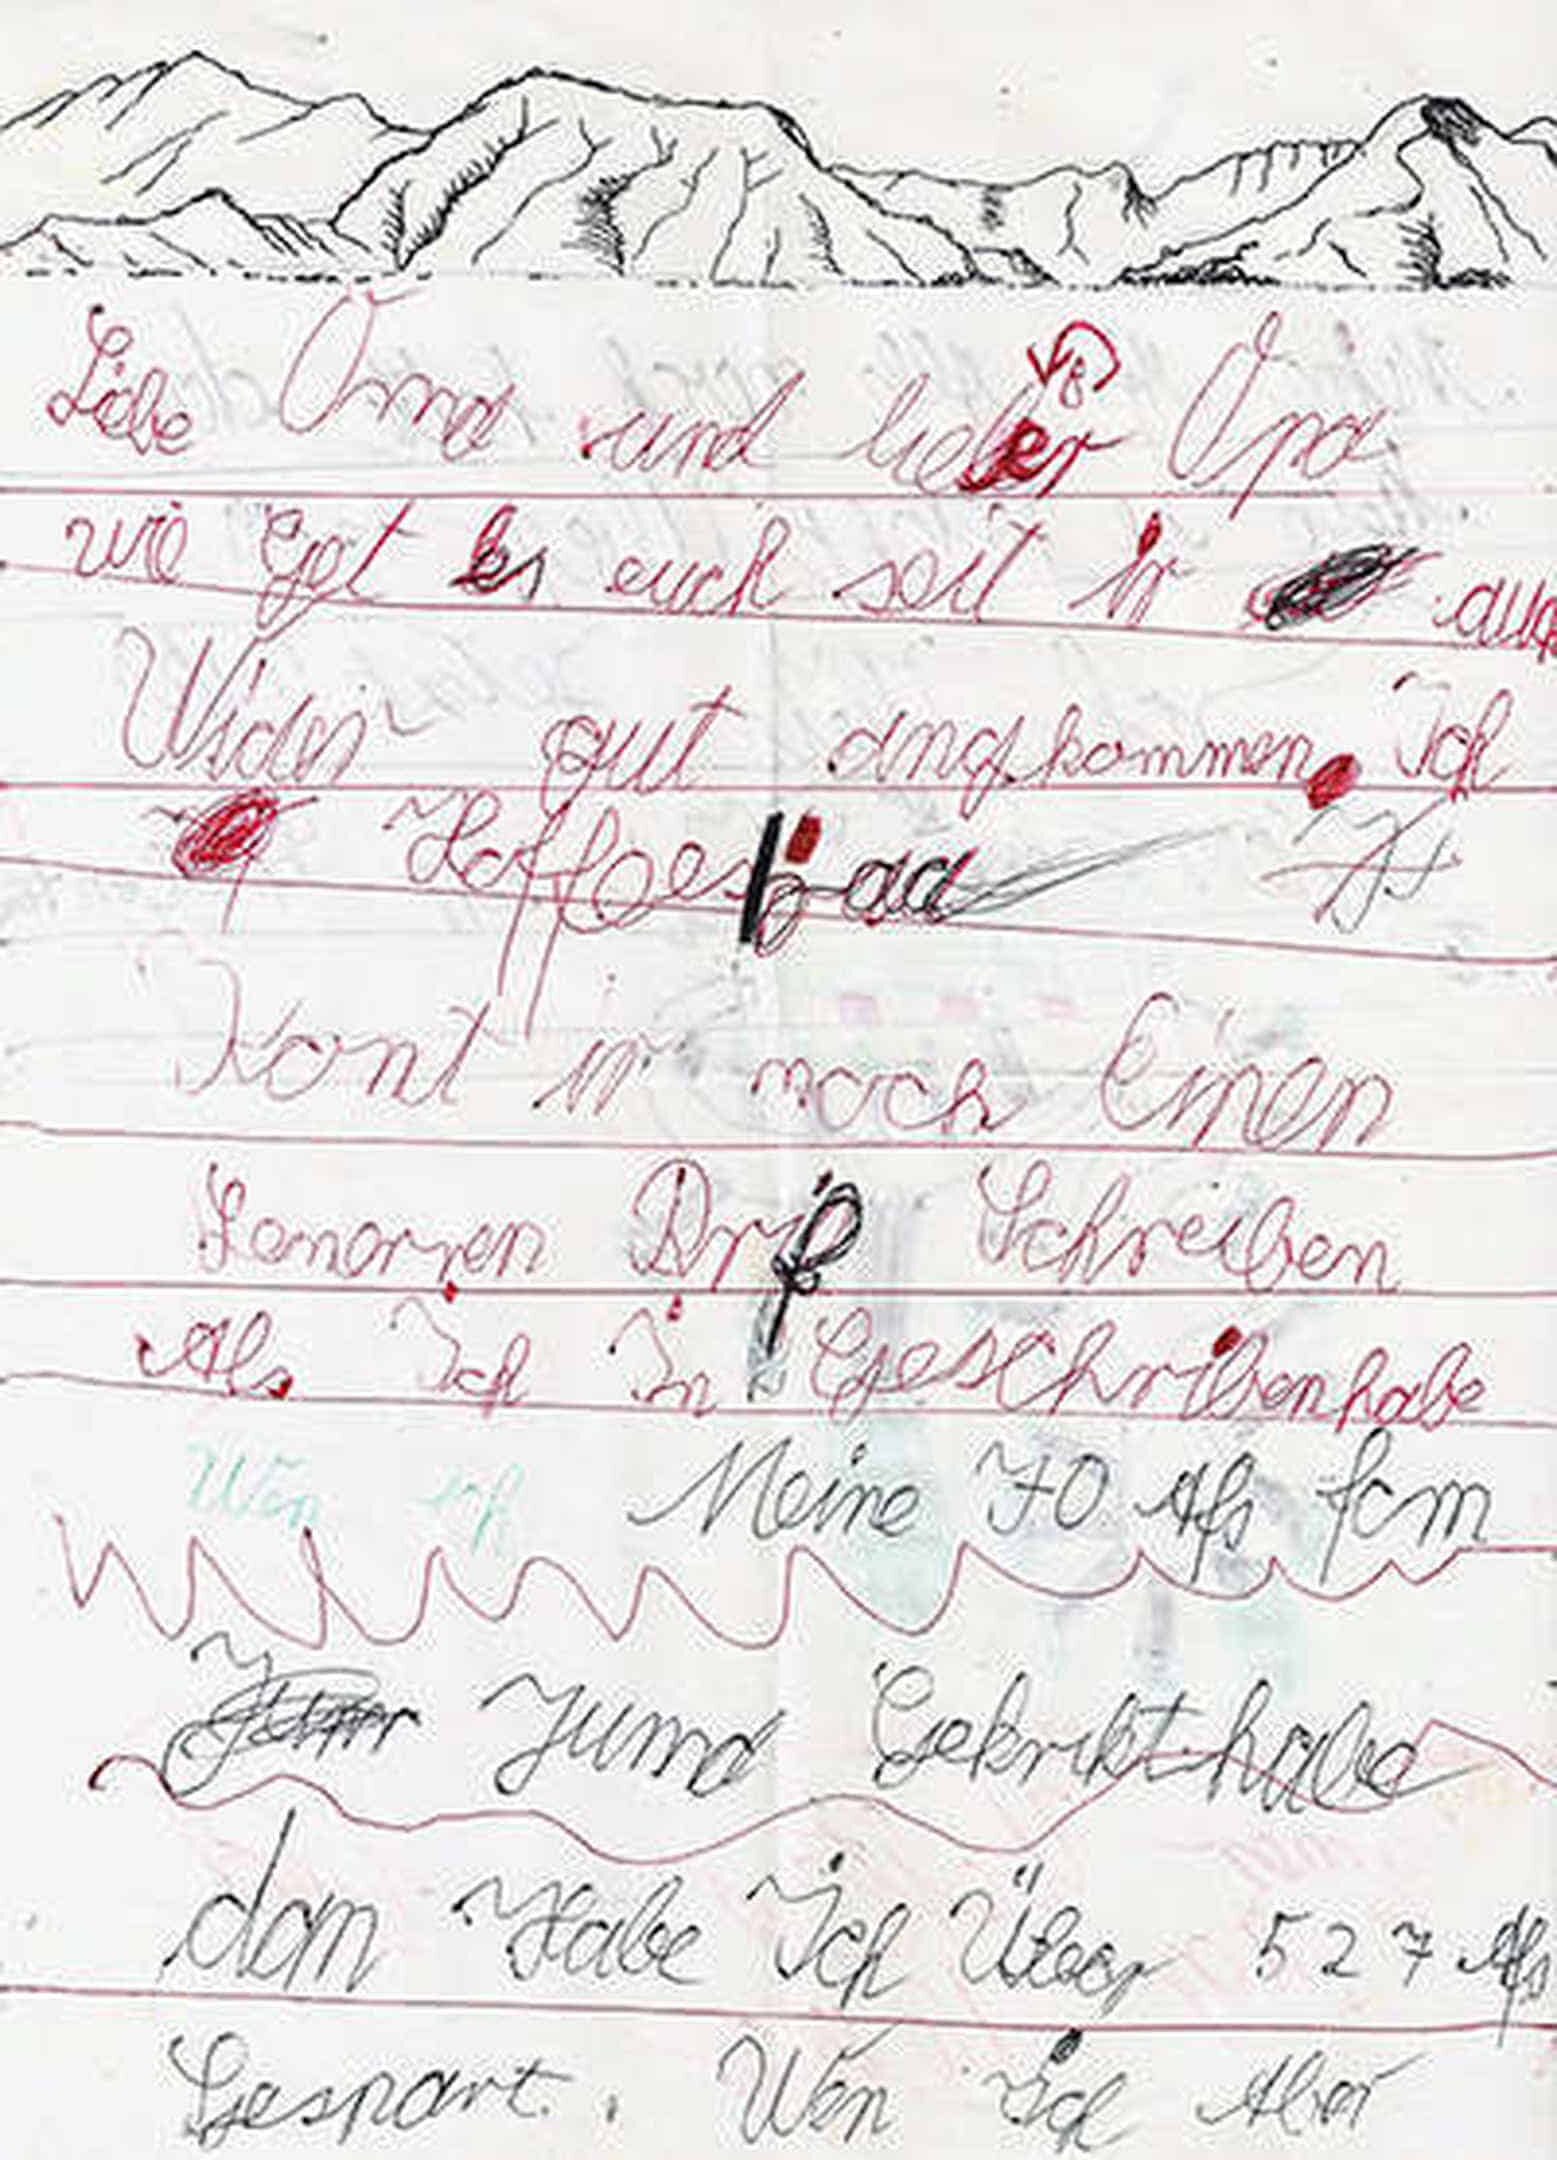 Liebe Oma und lieber Opa
wie get es euch seit ir auch
Wider gut angkommen. Ich
Hoffees
Kont ir noch Einen
Schreiben
Als Ich In Geschribenhabe
Wen ich Meine 70 Afs fom
Juma Gekrikt habe
dan Habe Ich Über 527 Afs
Gespart. Wen Ich Aber